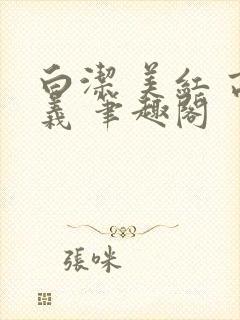 白潔 美紅 高
義 筆趣閣
張咪